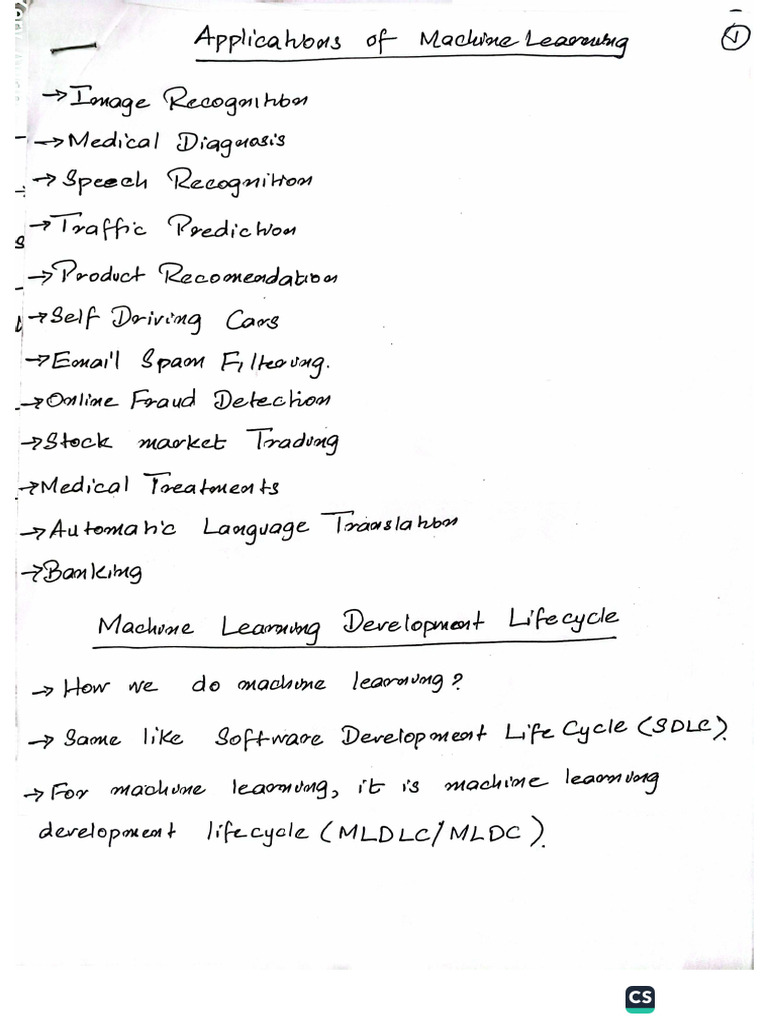 Applications of Machine Learning
1
→ Image Recognition
→ Medical Diagnosis
→ Speech Recognition
→ Traffic Prediction
→ Product Recomendation
→ Self Driving Cars
→ Email Spam Filtering.
→ Online Fraud Detection
→ Stock market Trading
→ Medical Treatments
→ Automatic Language Translation
→ Banking
Machine Learning Development Lifecycle
→ How we do machine learning?
→ Same like Software Development Life Cycle (SDLC).
→ For machine learning, it is machine learning
development lifecycle (MLDLC/MLDC).
CS